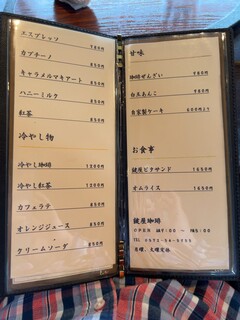 エスプレッソ 780円
カプチーノ 850円
キャラメルマキアート 850円
ハニーミルク 850円
紅茶 850円
冷やし物
冷やし珈琲 1200円
冷やし紅茶 1200円
カフェラテ 850円
オレンジジュース 850円
クリームソーダ 850円
甘味
珈琲ぜんざい 980円
白玉あんこ 980円
自家製ケーキ 600円より
お食事
鍵屋ビフサンド 1650円
オムライス 1650円
鍵屋珈琲
OPEN AM9:00 〜 PM5:00
月曜、火曜定休